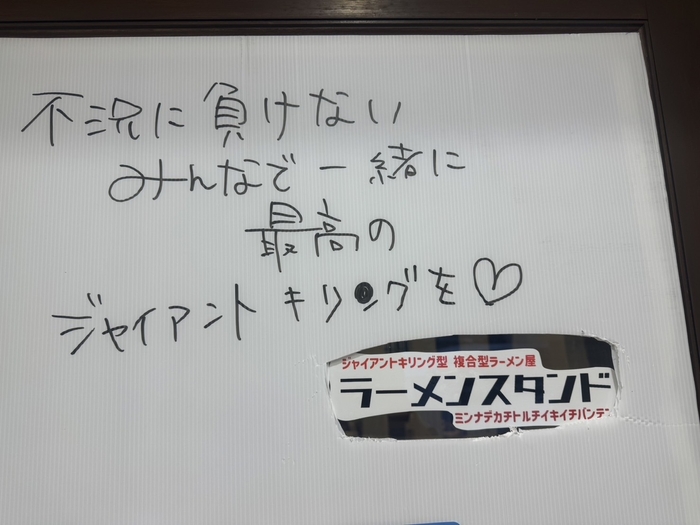 不況に負けない
みんなで一緒に
最高の
ジャイアントキリングを♡
ジャイアントキリング型 複合型ラーメン屋
ラーメンスタンド
ミンナデカチトルチイキイチバンテン